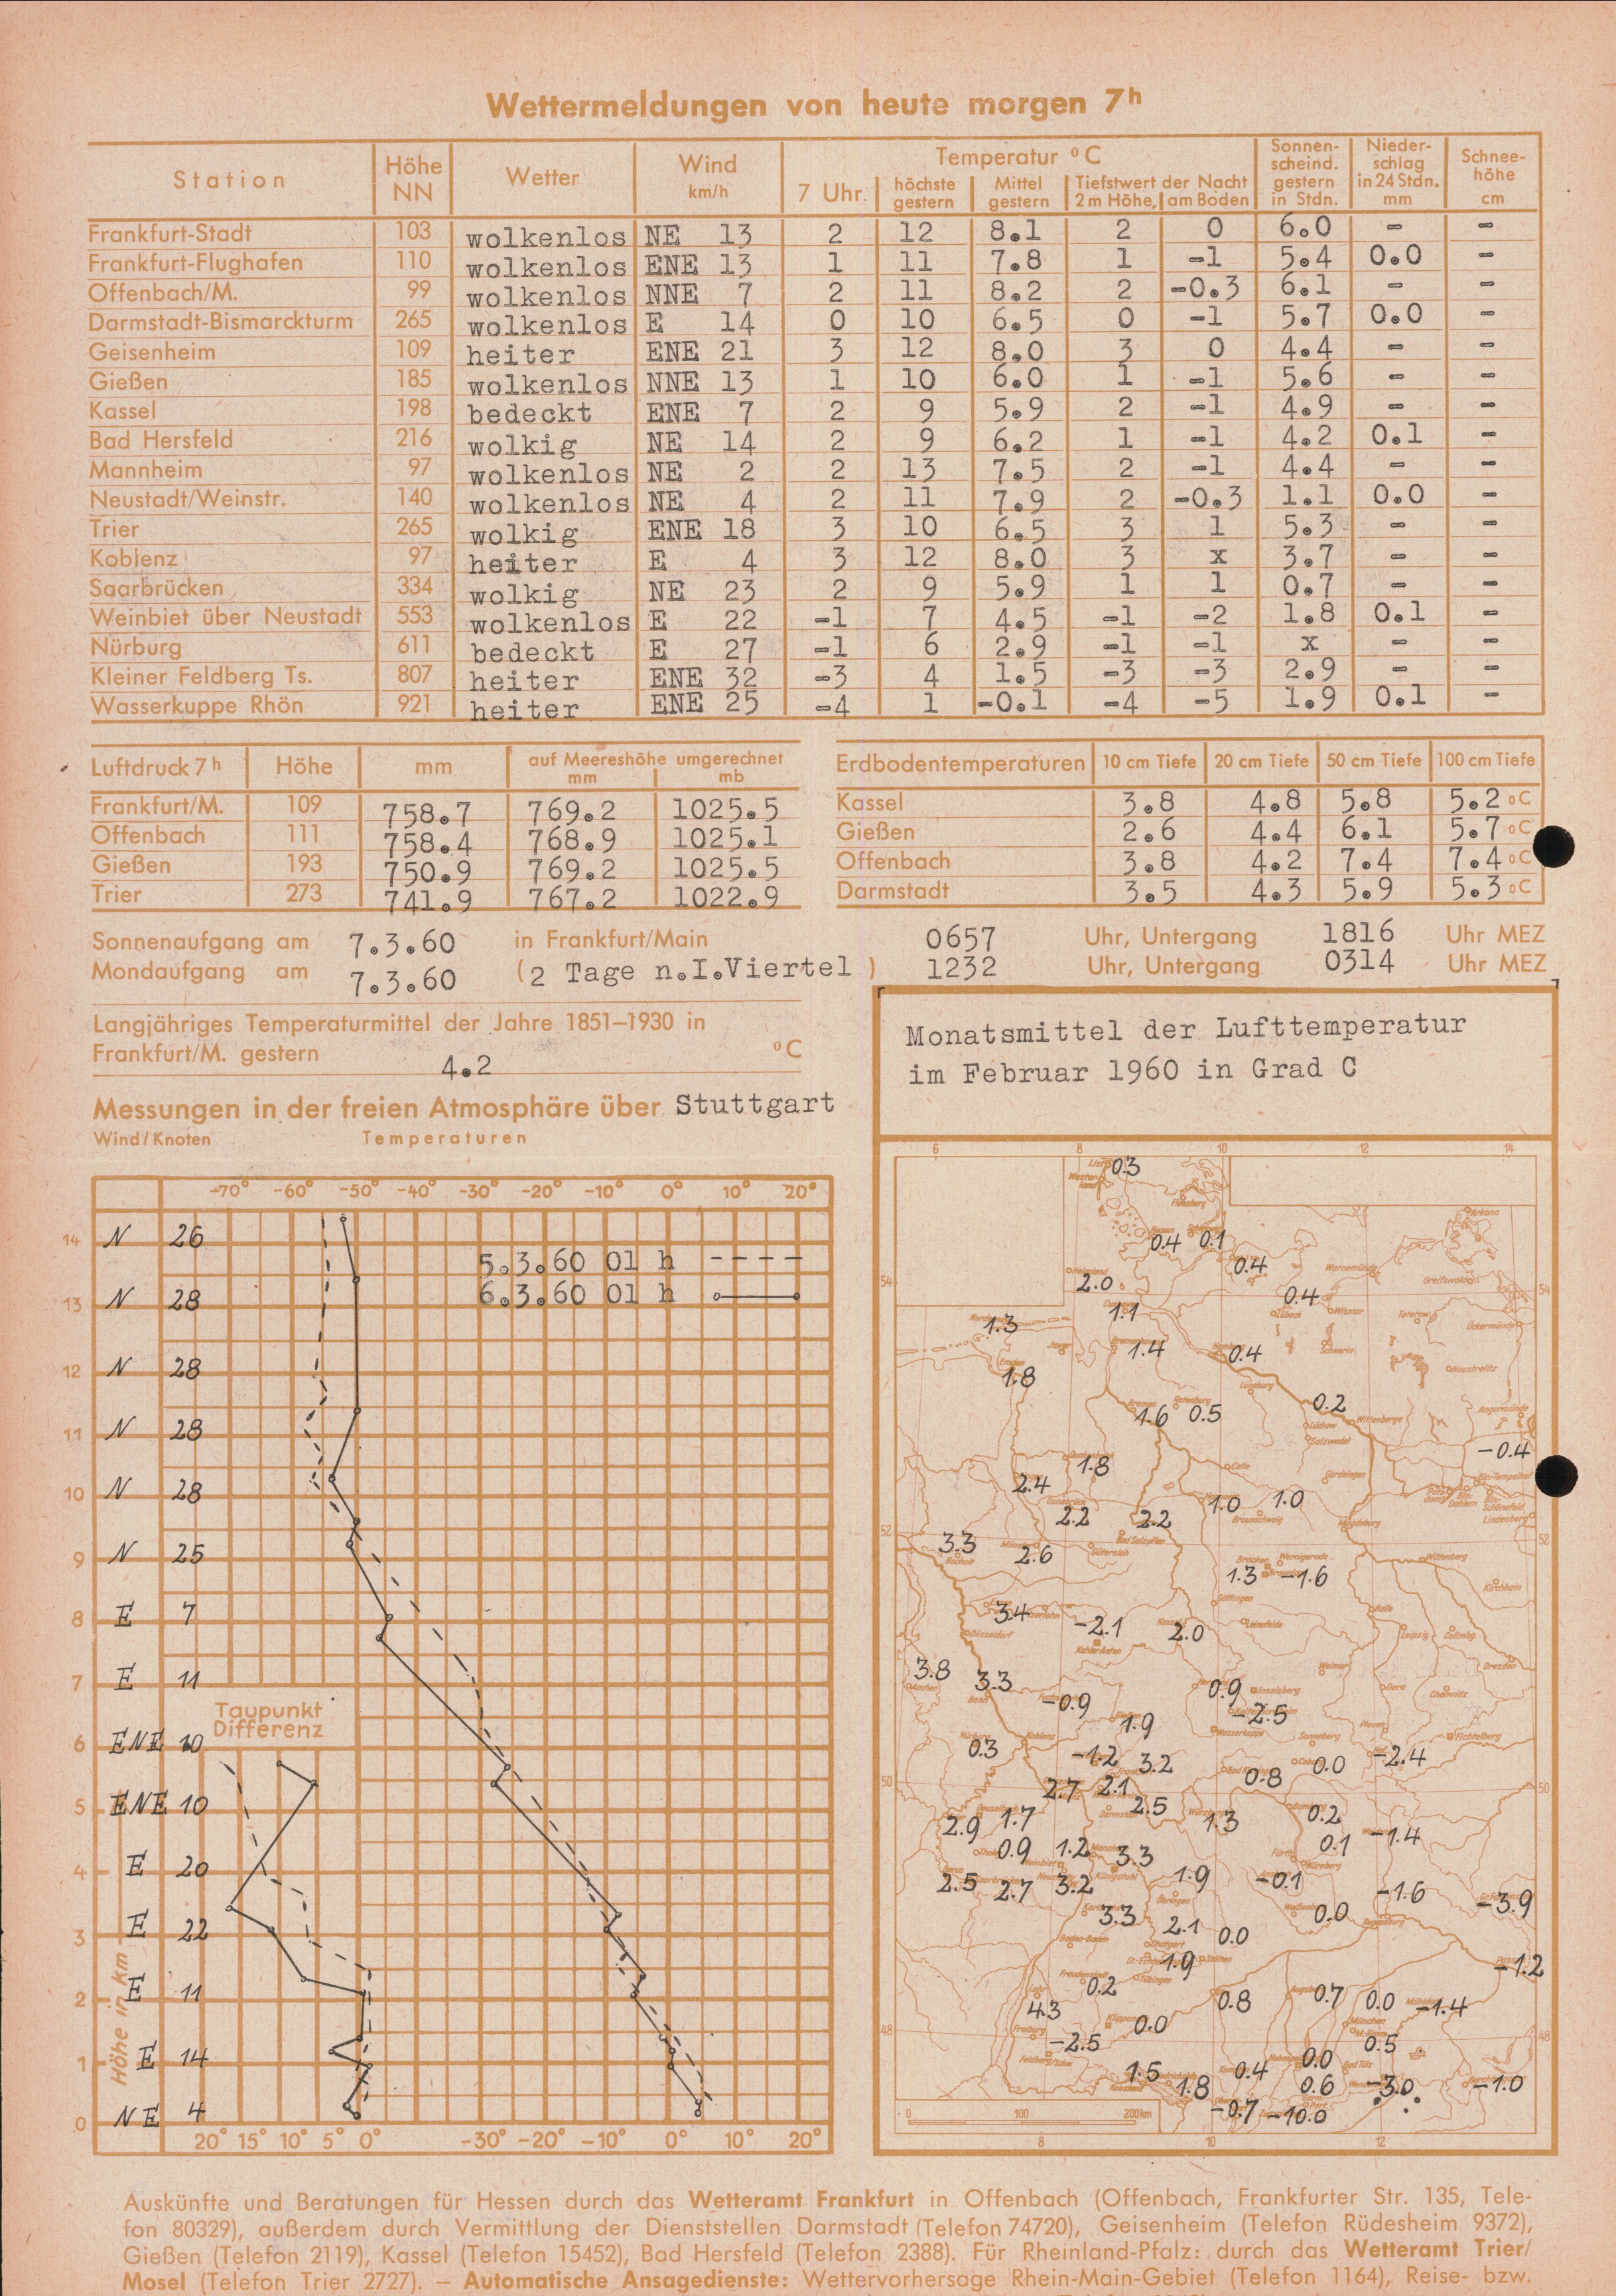 Wettermeldungen von heute morgen 7h
Station Höhe NN Wetter Wind km/h Temperatur °C 7 Uhr höchste gestern Mittel gestern Tiefstwert der Nacht 2 m Höhe, am Boden Sonnen-scheind. gestern in Stdn. Nieder-schlag in 24 Stdn. mm Schnee-höhe cm
Frankfurt-Stadt 103 wolkenlos NE 13 2 12 8.1 2 0 6.0 - -
Frankfurt-Flughafen 110 wolkenlos ENE 13 1 11 7.8 1 -1 5.4 0.0 -
Offenbach/M. 99 wolkenlos NNE 7 2 11 8.2 2 -0.3 6.1 - -
Darmstadt-Bismarckturm 265 wolkenlos E 14 0 10 6.5 0 -1 5.7 0.0 -
Geisenheim 109 heiter ENE 21 3 12 8.0 3 0 4.4 - -
Gießen 185 wolkenlos NNE 13 1 10 6.0 1 -1 5.6 - -
Kassel 198 bedeckt ENE 7 2 9 5.9 2 -1 4.9 - -
Bad Hersfeld 216 wolkig NE 14 2 9 6.2 1 -1 4.2 0.1 -
Mannheim 97 wolkenlos NE 2 2 13 7.5 2 -1 4.4 - -
Neustadt/Weinstr. 140 wolkenlos NE 4 2 11 7.9 2 -0.3 1.1 0.0 -
Trier 265 wolkig ENE 18 3 10 6.5 3 1 5.3 - -
Koblenz 97 heiter E 4 3 12 8.0 3 x 3.7 - -
Saarbrücken 334 wolkig NE 23 2 9 5.9 1 1 0.7 - -
Weinbiet über Neustadt 553 wolkenlos E 22 -1 7 4.5 -1 -2 1.8 0.1 -
Nürburg 611 bedeckt E 27 -1 6 2.9 -1 -1 x - -
Kleiner Feldberg Ts. 807 heiter ENE 32 -3 4 1.5 -3 -3 2.9 - -
Wasserkuppe Rhön 921 heiter ENE 25 -4 1 -0.1 -4 -5 1.9 0.1 -
Luftdruck 7h Höhe mm auf Meereshöhe umgerechnet mm mb
Frankfurt/M. 109 758.7 769.2 1025.5
Offenbach 111 758.4 768.9 1025.1
Gießen 193 750.9 769.2 1025.5
Trier 273 741.9 767.2 1022.9
Erdbodentemperaturen 10 cm Tiefe 20 cm Tiefe 50 cm Tiefe 100 cm Tiefe
Kassel 3.8 4.8 5.8 5.2 °C
Gießen 2.6 4.4 6.1 5.7 °C
Offenbach 3.8 4.2 7.4 7.4 °C
Darmstadt 3.5 4.3 5.9 5.3 °C
Sonnenaufgang am 7.3.60 in Frankfurt/Main 0657 Uhr, Untergang 1816 Uhr MEZ
Mondaufgang am 7.3.60 (2 Tage n.I.Viertel) 1232 Uhr, Untergang 0314 Uhr MEZ
Langjähriges Temperaturmittel der Jahre 1851–1930 in
Frankfurt/M. gestern 4.2 °C
Messungen in der freien Atmosphäre über Stuttgart
Wind/Knoten Temperaturen
-70° -60° -50° -40° -30° -20° -10° 0° 10° 20°
14 N 26
5.3.60 01 h ----
6.3.60 01 h
13 N 28
12 N 28
11 N 28
10 N 28
9 N 25
8 E 7
7 E 11
Taupunkt
Differenz
6 ENE 10
5 ENE 10
4 E 20
3 E 22
2 E 11
1 E 14
0 NE 4
Höhe in km
20° 15° 10° 5° 0° -30° -20° -10° 0° 10° 20°
Monatsmittel der Lufttemperatur
im Februar 1960 in Grad C
6 8 10 12 14
0.3
0.4 0.1
0.4
2.0
0.4
1.1
1.3
1.4 0.4
1.8
0.2
1.6 0.5
-0.4
1.8
2.4
1.0 1.0
2.2 2.2
3.3 2.6
1.3 -1.6
3.4 -2.1 2.0
3.8 3.3
-0.9 0.9
1.9 -2.5
0.3 -1.2 3.2 0.0 -2.4
0.8
2.7 2.1
2.5
2.9 1.7 1.3 0.2
0.1 -1.4
0.9 1.2 3.3
2.5 2.7 3.2 1.9 -0.1
-1.6 -3.9
3.3 2.1 0.0 0.0
1.9 -1.2
0.2
4.3 0.8 0.7 0.0 -1.4
0.0
-2.5 0.5
1.5 0.4 0.0
1.8 0.6 -3.0 -1.0
-0.7 -10.0
0 100 200km
8 10 12
Auskünfte und Beratungen für Hessen durch das Wetteramt Frankfurt in Offenbach (Offenbach, Frankfurter Str. 135, Tele-
fon 80329), außerdem durch Vermittlung der Dienststellen Darmstadt (Telefon 74720), Geisenheim (Telefon Rüdesheim 9372),
Gießen (Telefon 2119), Kassel (Telefon 15452), Bad Hersfeld (Telefon 2388). Für Rheinland-Pfalz: durch das Wetteramt Trier/
Mosel (Telefon Trier 2727). – Automatische Ansagedienste: Wettervorhersage Rhein-Main-Gebiet (Telefon 1164), Reise- bzw.